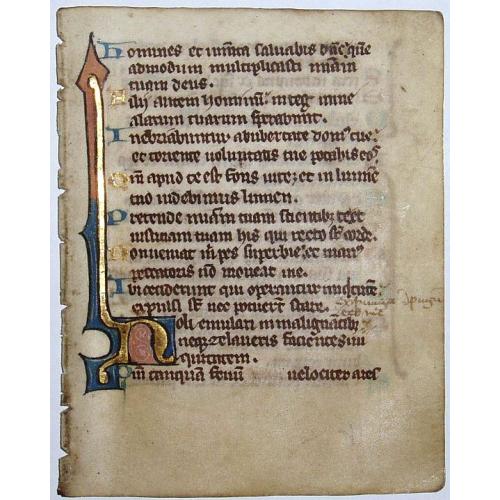 homines et iumta salvabis dne que
admodum multiplicasti miam
tuam deus.
Filij autem hominu: in teg mine
alarum tuarum sperabunt.
Inebriabuntur ab ubertate dom9 tue:
et torrente voluptatis tue potabis eos.
Qm apud te est fons vite: et in lumine
tuo videbimus lumen.
Pretende miam tuam scientib3 te: et
iusticiam tuam his qui recto st corde.
Non veniat m pes superbie: et man9
peccatoris no moveat me.
Ibi ceciderunt qui operantur iniquitate:
expulsi st nec potuerunt stare.
Noli emulari in malignatib3
neq3 zelaveris facientes in
iquitatem.
Qm tanquā fenū velociter ares